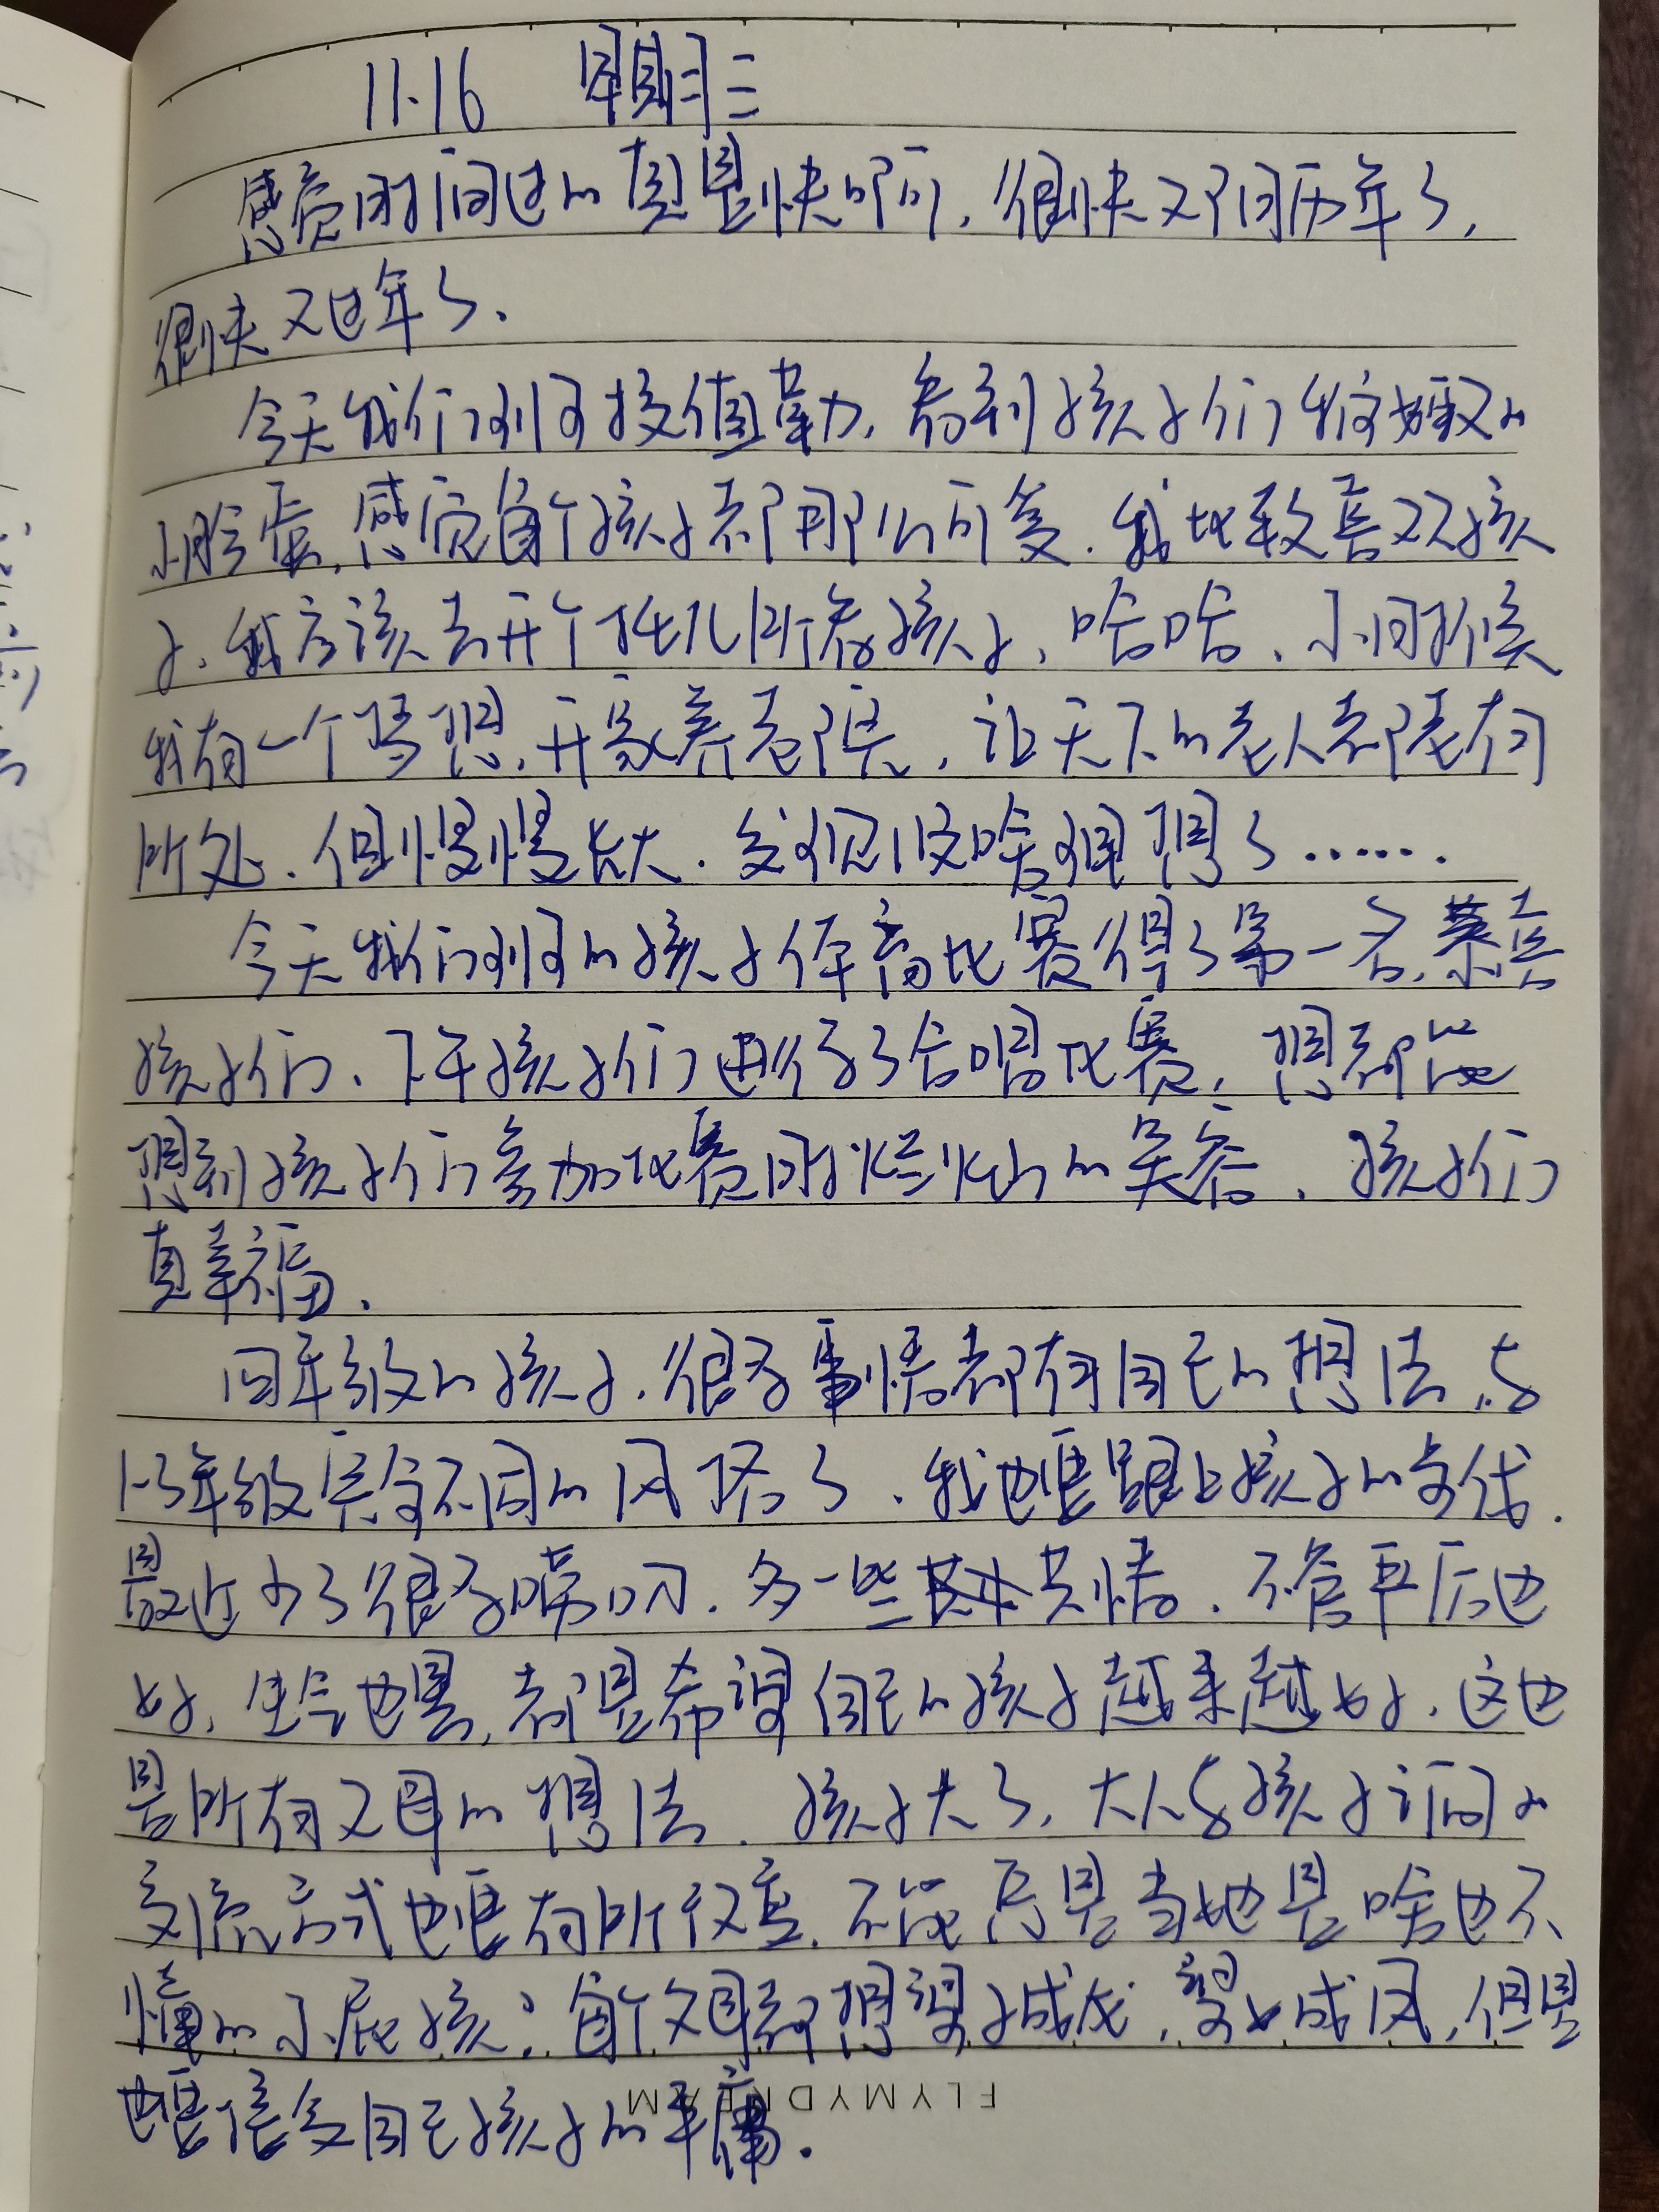 11.16 星期三
感觉时间过的真是快啊,很快又阳历年了,
很快又过年了.
今天我们班接值勤,看到孩子们的
小脸蛋,感觉每个孩子都那么可爱.我比较喜欢孩
子.我应该去开个托儿所看孩子,哈哈.小时候
我有一个梦想,开家养老院,让天下的老人都老有
所处.但慢慢长大.发现没啥理想了……
今天我们班的孩子体育比赛得了第一名,恭喜
孩子们.下午孩子们进行了合唱比赛,想都能
想到孩子们参加比赛时灿烂的笑容.孩子们
真幸福.
四年级的孩子.很多事情都有自己的想法.与
1-3年级完全不同的风格了.我也要跟上孩子的步伐.
最近少了很多唠叨.多一些共情.不管平后也
好,生气也罢,都是希望自己的孩子越来越好.这也
是所有父母的想法.孩子大了,大人与孩子之间的
交流方式也要有所改变.不能只是当他是啥也不
懂的小屁孩;每个父母都想望子成龙,望女成凤,但是
也要接受自己孩子的平庸.
FLYMYDREAM